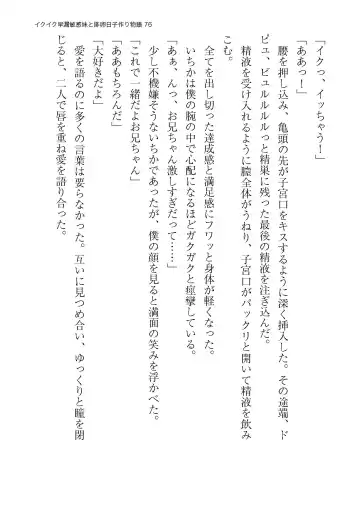 イクイク早漏敏感妹と排卵日子作り物語 76
「イクっ、イッちゃう！」
「ああっ！」
　腰を押し込み、亀頭の先が子宮口をキスするように深く挿入した。その途端、ド
ピュ、ビュルルルルっと精巣に残った最後の精液を注ぎ込んだ。
　精液を受け入れるように膣全体がうねり、子宮口がパックリと開いて精液を飲み
こむ。
　全てを出し切った達成感と満足感にフワッと身体が軽くなった。
　いちかは僕の腕の中で心配になるほどガクガクと痙攣している。
「あぁ、んっ、お兄ちゃん激しすぎだって……」
　少し不機嫌そうないちかであったが、僕の顔を見ると満面の笑みを浮かべた。
「これで一緒だよお兄ちゃん」
「ああもちろんだ」
「大好きだよ」
　愛を語るのに多くの言葉は要らなかった。互いに見つめ合い、ゆっくりと瞳を閉
じると、二人で唇を重ね愛を語り合った。